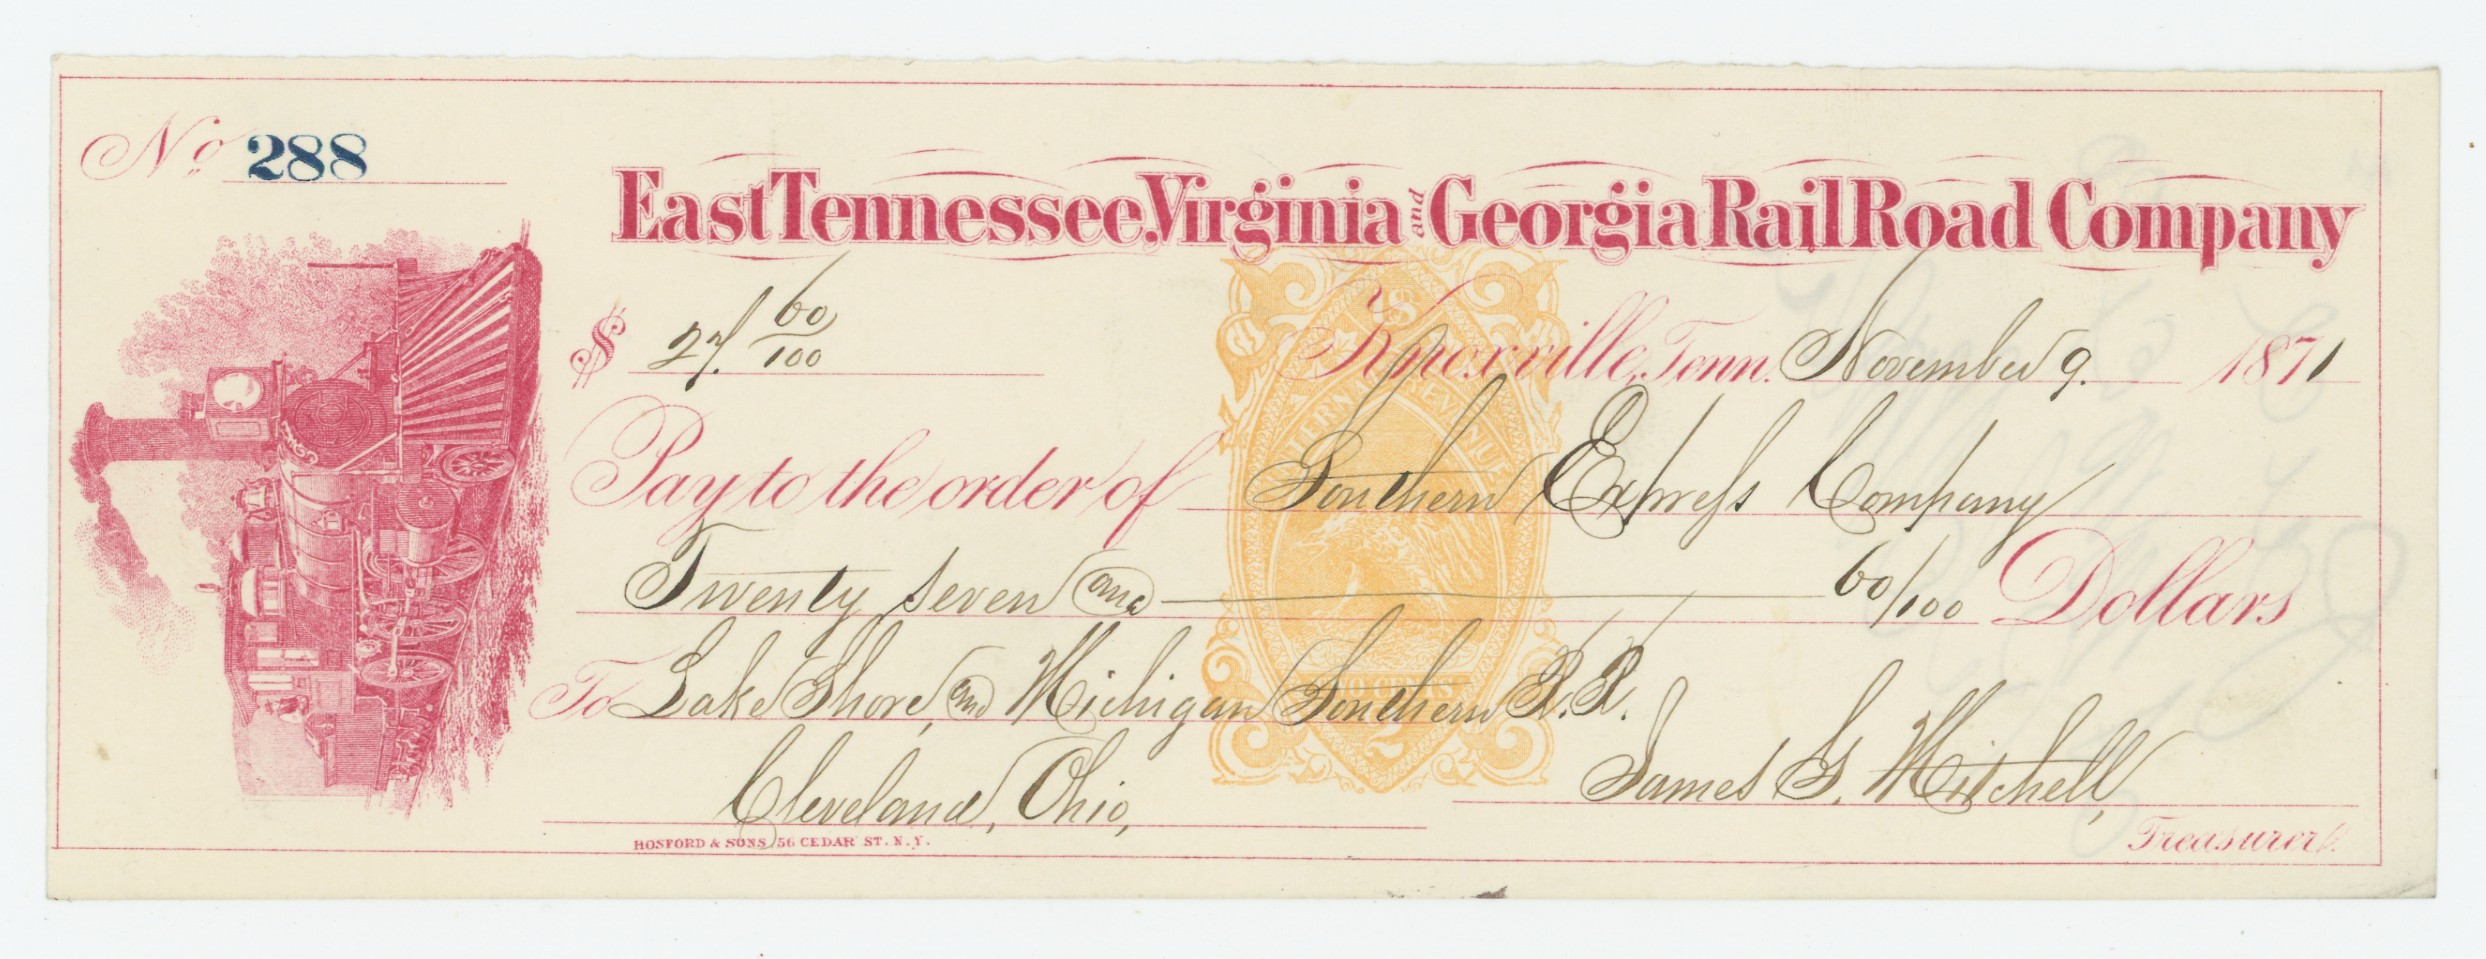 No. 288
East Tennessee, Virginia and Georgia Rail Road Company
$ 27. 60/100 Knoxville, Tenn. November 9. 1871
Pay to the order of Southern Express Company
Twenty seven and 60/100 Dollars
To Lake Shore, and Michigan Southern R.R.
Cleveland, Ohio,
James G. Mitchell,
Treasurer.
HOSFORD & SONS, 56 CEDAR ST. N.Y.
U.S.
INTERNAL REVENUE
TWO CENTS
2